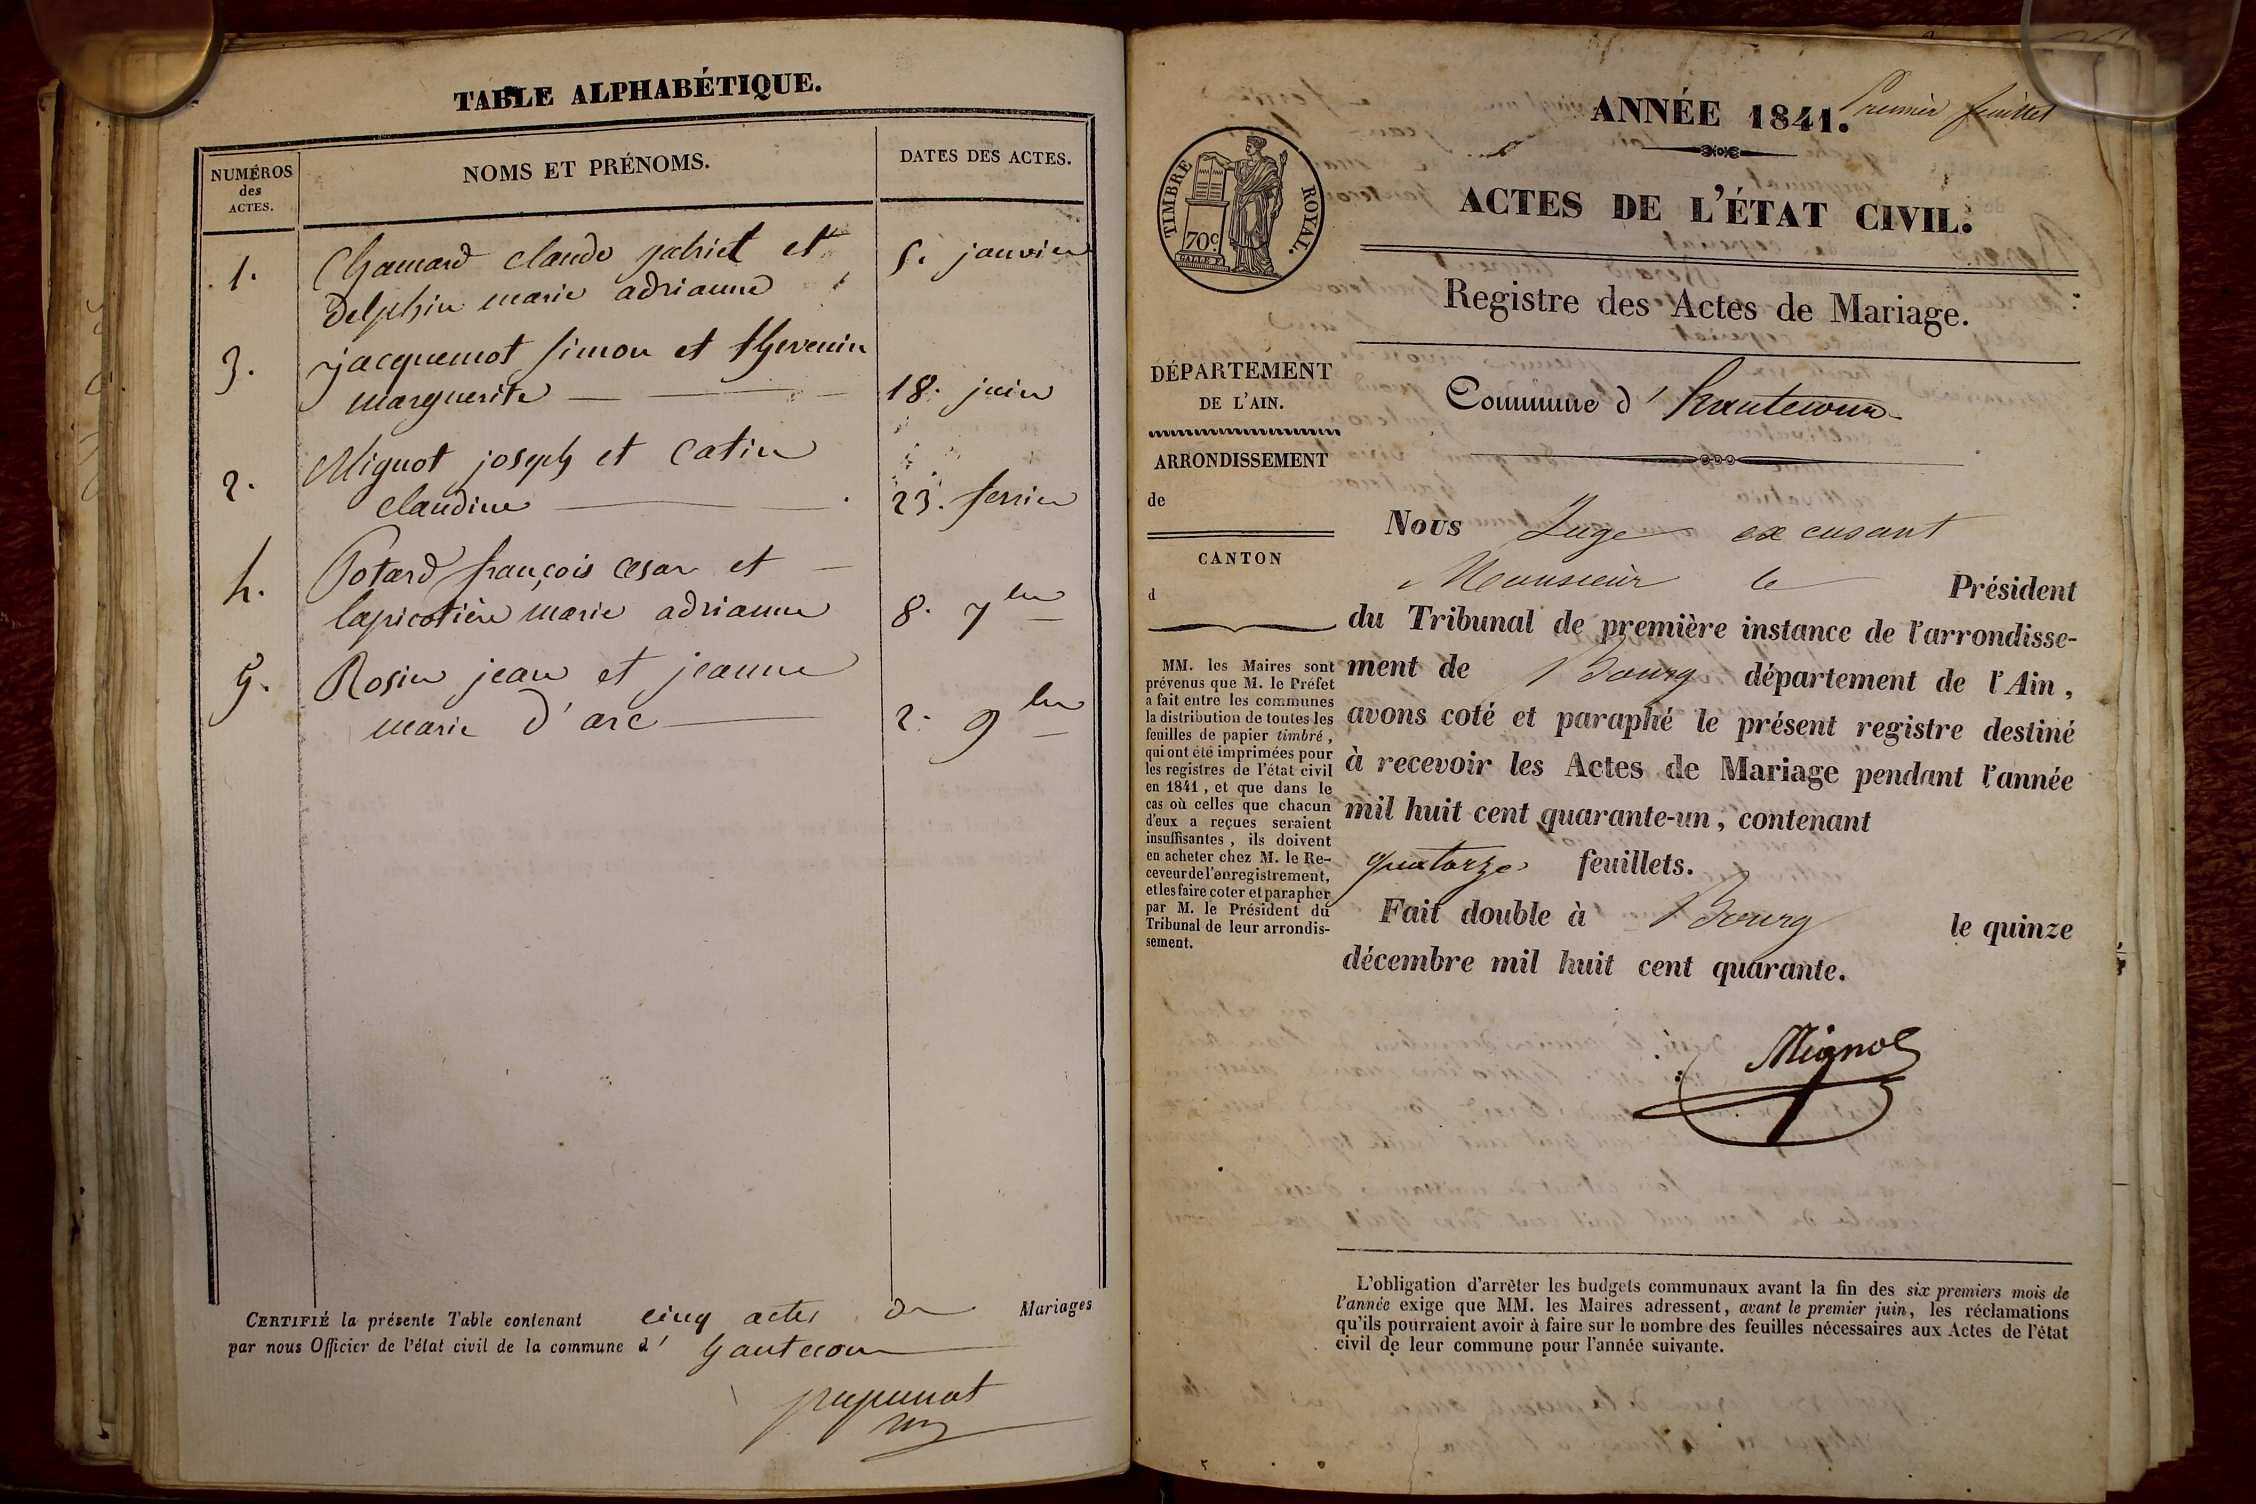 TABLE ALPHABÉTIQUE.
NUMÉROS
des
ACTES.
NOMS ET PRÉNOMS.
DATES DES ACTES.
1. Chamard claude gabriel et 5. janvier
delphin marie adrianne
3. jacquemot simon et thevenin
marguerite 18. juin
2. Mignot joseph et Catin
claudine 23. fevrier
4. Potard françois cesar et
lapicotière marie adrianne 8. 7bre
5. Rosin jean et jeanne
marie d'arc 2. 9bre
CERTIFIÉ la présente Table contenant cinq actes de Mariages
par nous Officier de l'état civil de la commune d' hautecour
ANNÉE 1841. Premier feuillet
TIMBRE ROYAL.
70c.
ACTES DE L'ÉTAT CIVIL.
Registre des Actes de Mariage.
DÉPARTEMENT
DE L'AIN.
ARRONDISSEMENT
de
CANTON
d
MM. les Maires sont
prévenus que M. le Préfet
a fait entre les communes
la distribution de toutes les
feuilles de papier timbré,
qui ont été imprimées pour
les registres de l'état civil
en 1841, et que dans le
cas où celles que chacun
d'eux a reçues seraient
insuffisantes, ils doivent
en acheter chez M. le Re-
ceveur de l'enregistrement,
et les faire coter et parapher
par M. le Président du
Tribunal de leur arrondis-
sement.
Commune d' hautecour
Nous Juge excusant
Monsieur le Président
du Tribunal de première instance de l'arrondisse-
ment de Bourg département de l'Ain,
avons coté et paraphé le présent registre destiné
à recevoir les Actes de Mariage pendant l'année
mil huit cent quarante-un, contenant
quatorze feuillets.
Fait double à Bourg le quinze
décembre mil huit cent quarante.
L'obligation d'arrêter les budgets communaux avant la fin des six premiers mois de
l'année exige que MM. les Maires adressent, avant le premier juin, les réclamations
qu'ils pourraient avoir à faire sur le nombre des feuilles nécessaires aux Actes de l'état
civil de leur commune pour l'année suivante.